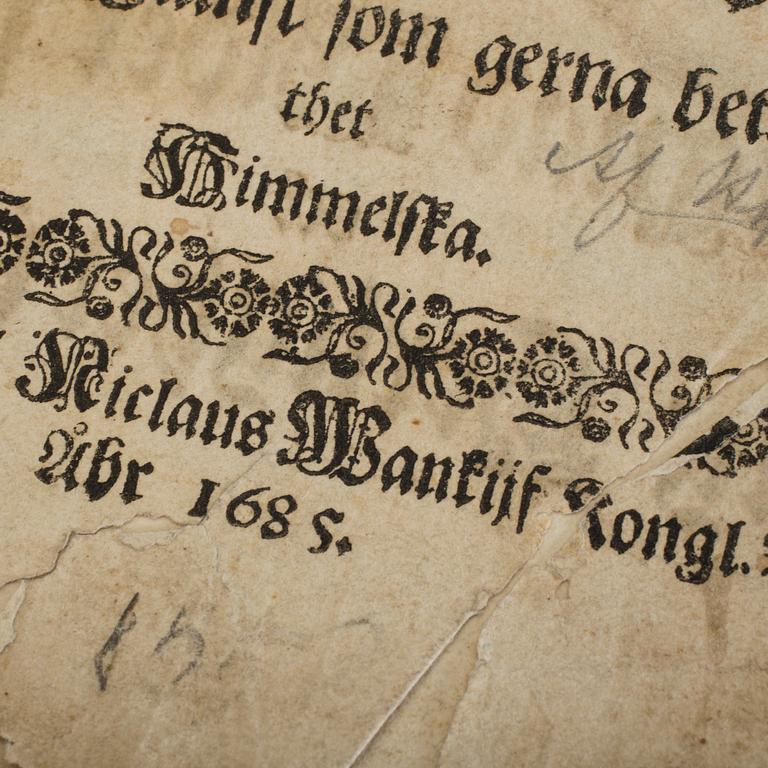 som gerna bet
thet
Himmelska.
Af
Niclaus Wankijf Kongl.
Åhr 1685.